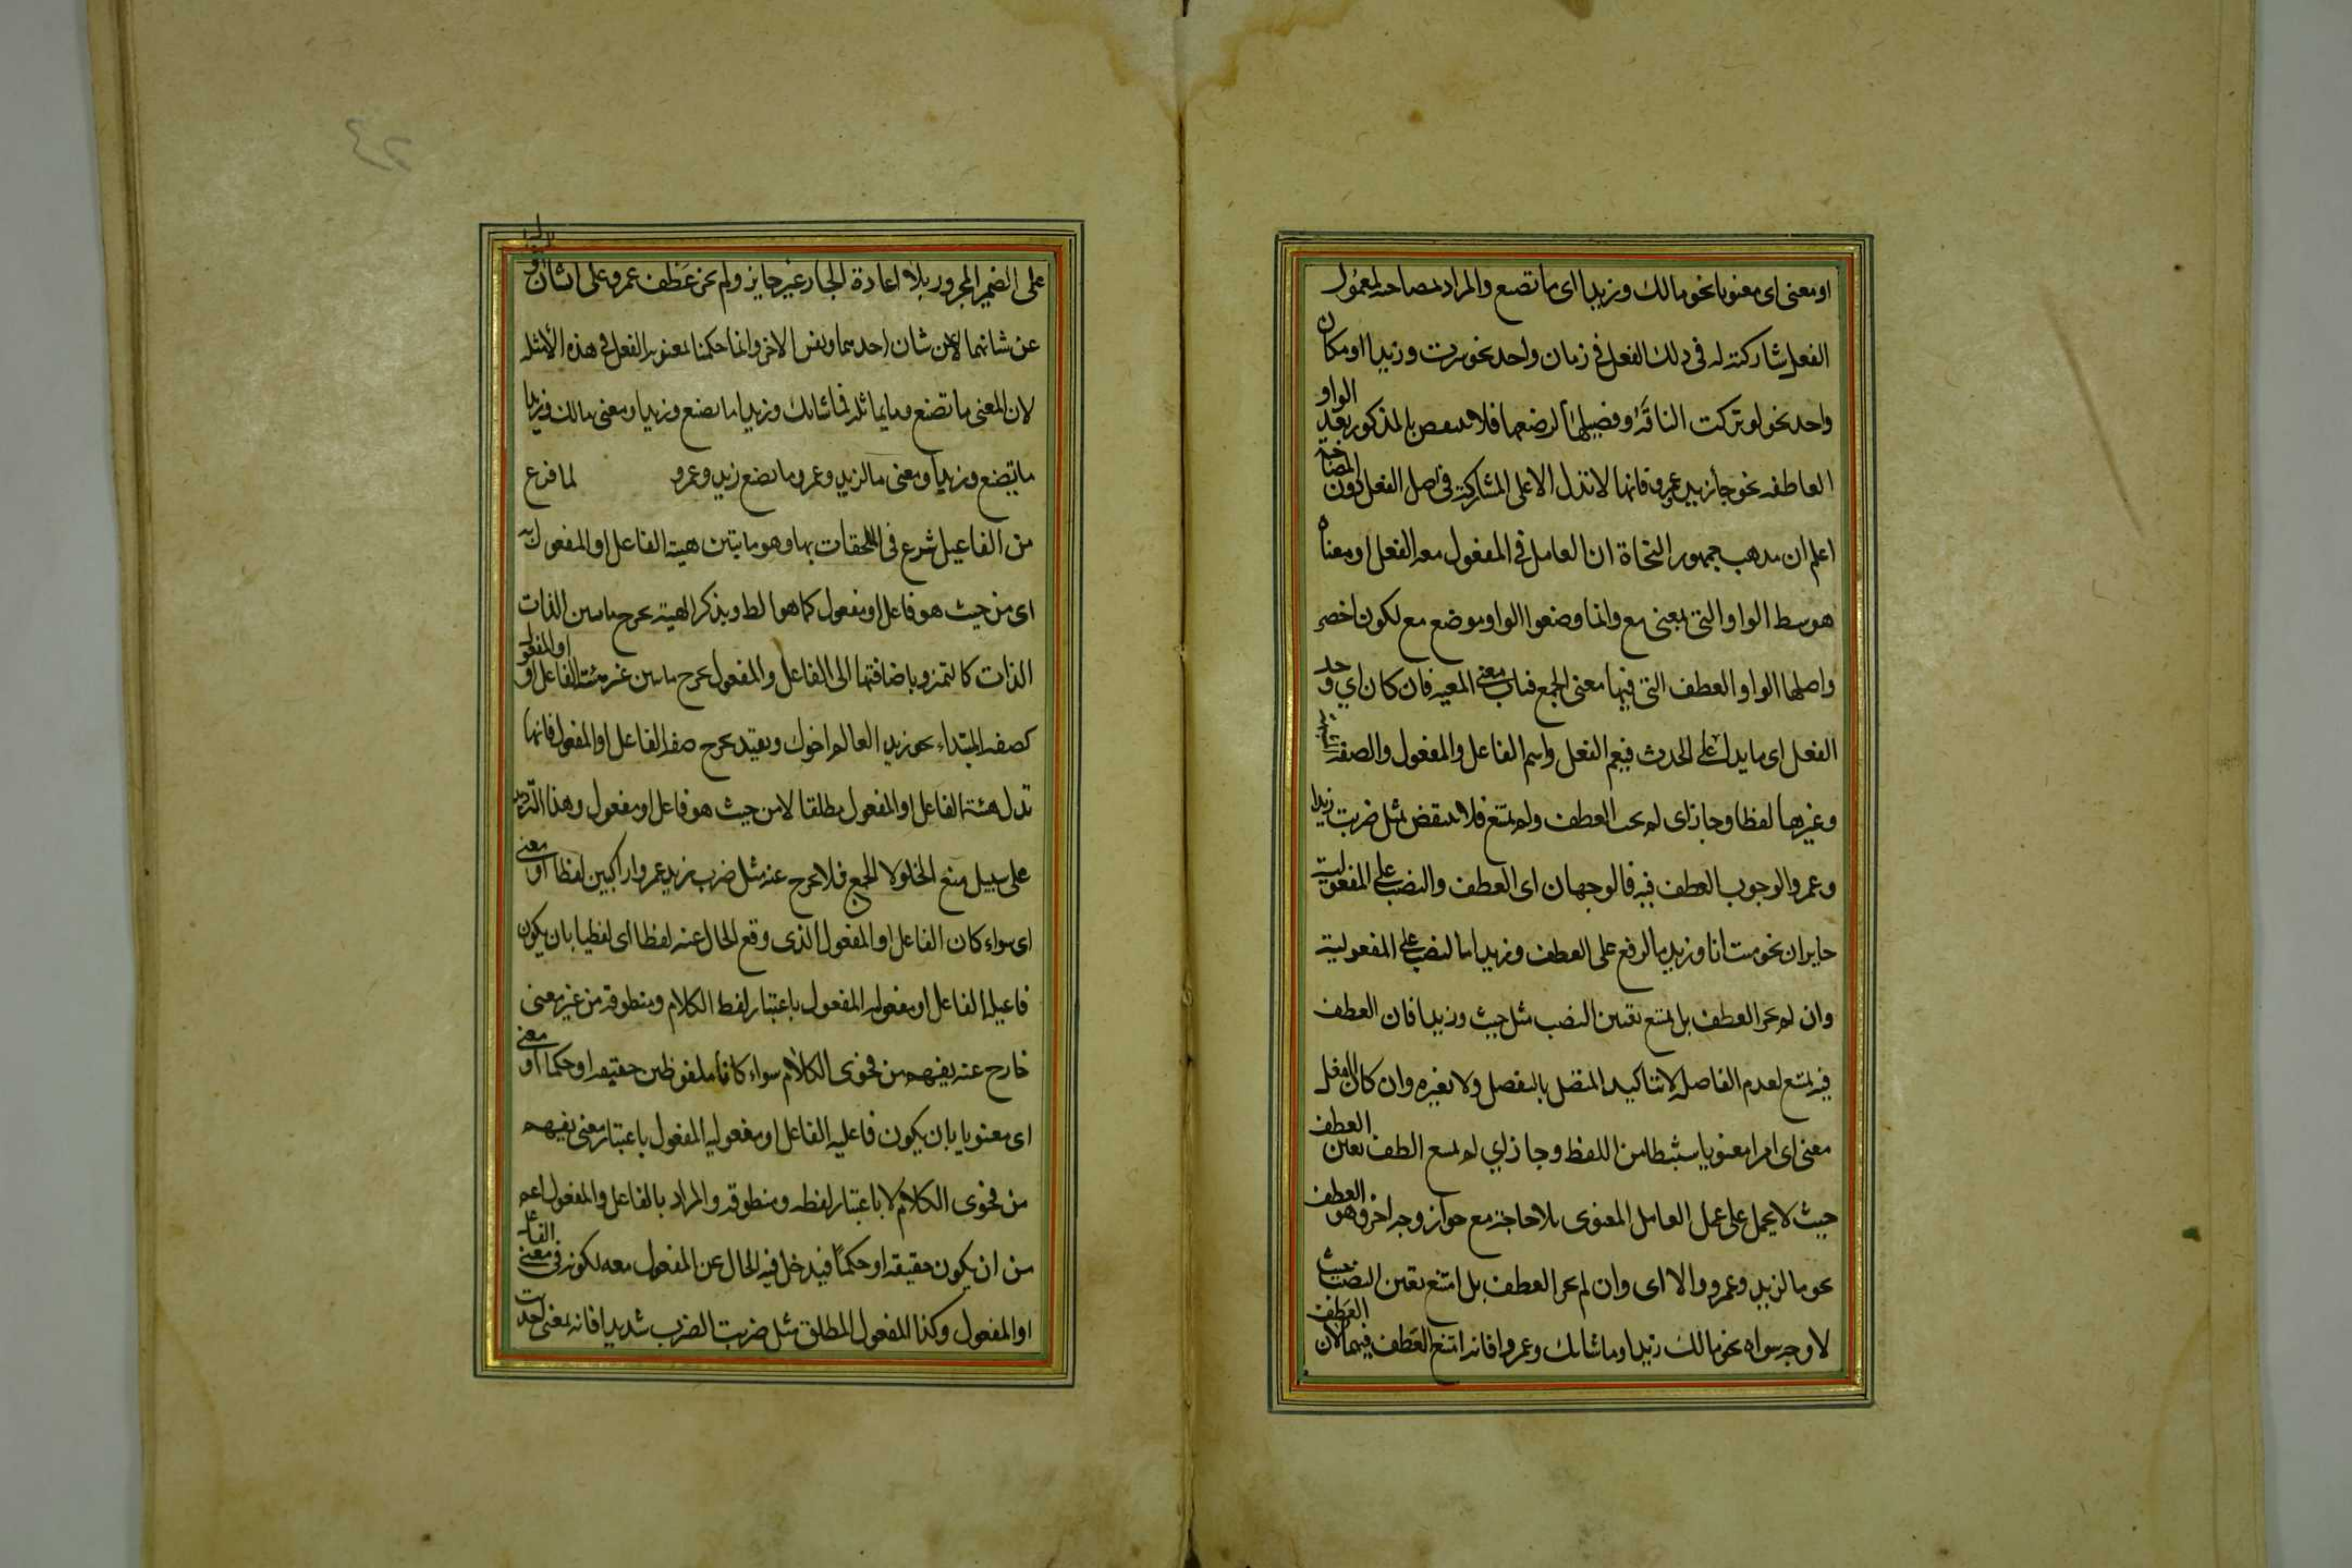 او معنى اى معنويا نحو مالك وزيدا اى ما تصنع والمراد بمصاحبته لمعمول
الفعل مشاركته له فى ذلك الفعل فى زمان واحد نحو سرت وزيدا او مكان
واحد نحو لو تركت الناقة وفصيلها لرضعها فلا ينتقض بالمذكور بعد الواو
العاطفه نحو جأ زيد وعمرو فانها لا تدل الا على المشاركة فى اصل الفعل دون المصاحبة
اعلم ان مذهب جمهور النحاة ان العامل فى المفعول معه الفعل او معناه
هو بتوسط الواو التى بمعنى مع وانما وضعوا الواو موضع مع لكون اخصر
واصلها الواو العطف التى فيها معنى الجمع فناب معنى المعيه فان كان اي وجد
الفعل اى ما يدل على الحدث فيعم الفعل واسم الفاعل والمفعول والصفة المشبهة
وغيرها لفظا وجاز اى لم يجب العطف ولم يمتنع فلا ينتقض بمثل ضربت زيدا
وعمروا لوجوب العطف فيه فالوجهان اى العطف والنصب على المفعولية
جايزان نحو جئت انا وزيد بالرفع على العطف وزيدا بالنصب على المفعولية
وان لم يجز العطف بل يمتنع تعين النصب مثل جيث وزيدا فان العطف
فيه يمتنع لعدم الفاصلة لا بتاكيد المتصل بالمنفصل ولا بغيره وان كان الفعل
معنى اى امرا معنويا مستنبطا من اللفظ وجاز اي لم يمتنع الطف تعين العطف
حيث لا يحمل على عمل العامل المعنوى بلا حاجة مع جواز وجه اخر وهو العطف
نحو ما لزيد وعمرو والا اى وان لم يجز العطف بل امتنع تعين النصب حيث
لا وجه سواه نحو مالك وزيدا وما شانك وعمروا فانه امتنع العطف فيهما لان العطف
على الضمير المجرور بلا اعادة الجار غير جايز ولم يجز عطف عمرو على الشان
عن شانهما لا عن شان احدهما ونفس الاخر وانما حكمنا بمعنوية الفعل فى هذه الأمثله
لان المعنى ما تصنع وما يماثله فما شانك وزيدا ما تصنع وزيدا ومعنى مالك وزيدا
ما تصنع وزيدا ومعنى ما لزيد وعمرو ما تصنع زيد وعمرو لما فرغ
من المفاعيل شرع فى الملحقات بها وهو ما يبين هيئة الفاعل او المفعول به
اى من حيث هو فاعل او مفعول كما هو الظ وبذكر الهيئة يخرج ما يبين الذات
الذات كالتميز وباضافتها الى الفاعل والمفعول يخرج ما يبين غير هيئة الفاعل او المفعول
كصفة المبتداء نحو زيد العالم اخوك وبقيد يخرج صفة الفاعل او المفعول فانها
تدل هيئة الفاعل او المفعول مطلقا لا من حيث هو فاعل او مفعول وهذا الترديد
على سبيل منع الخلو لا الجمع فلا يخرج عنه مثل ضرب زيد عمروا راكبين لفظا او معنى
اى سواء كان الفاعل او المفعول الذى وقع الحال عنه لفظا اى لفظيا بان يكون
فاعلية الفاعل او مفعولية المفعول باعتبار لفظ الكلام ومنطوقه من غير معنى
خارج عنه يفهم من فحوى الكلام سواء كانا ملفوظين حقيقه او حكما او معنى
اى معنويا بان يكون فاعلية الفاعل او مفعولية المفعول باعتبار معنى يفهم
من فحوى الكلام لا باعتبار لفظه ومنطوقه والمراد بالفاعل والمفعول اعم
من ان يكون حقيقة او حكما فيدخل فيه الحال عن المفعول معه لكونه فى معنى الفاعل
او المفعول وكذا المفعول المطلق مثل ضربت الضرب شديدا فانه بمعنى احدثت